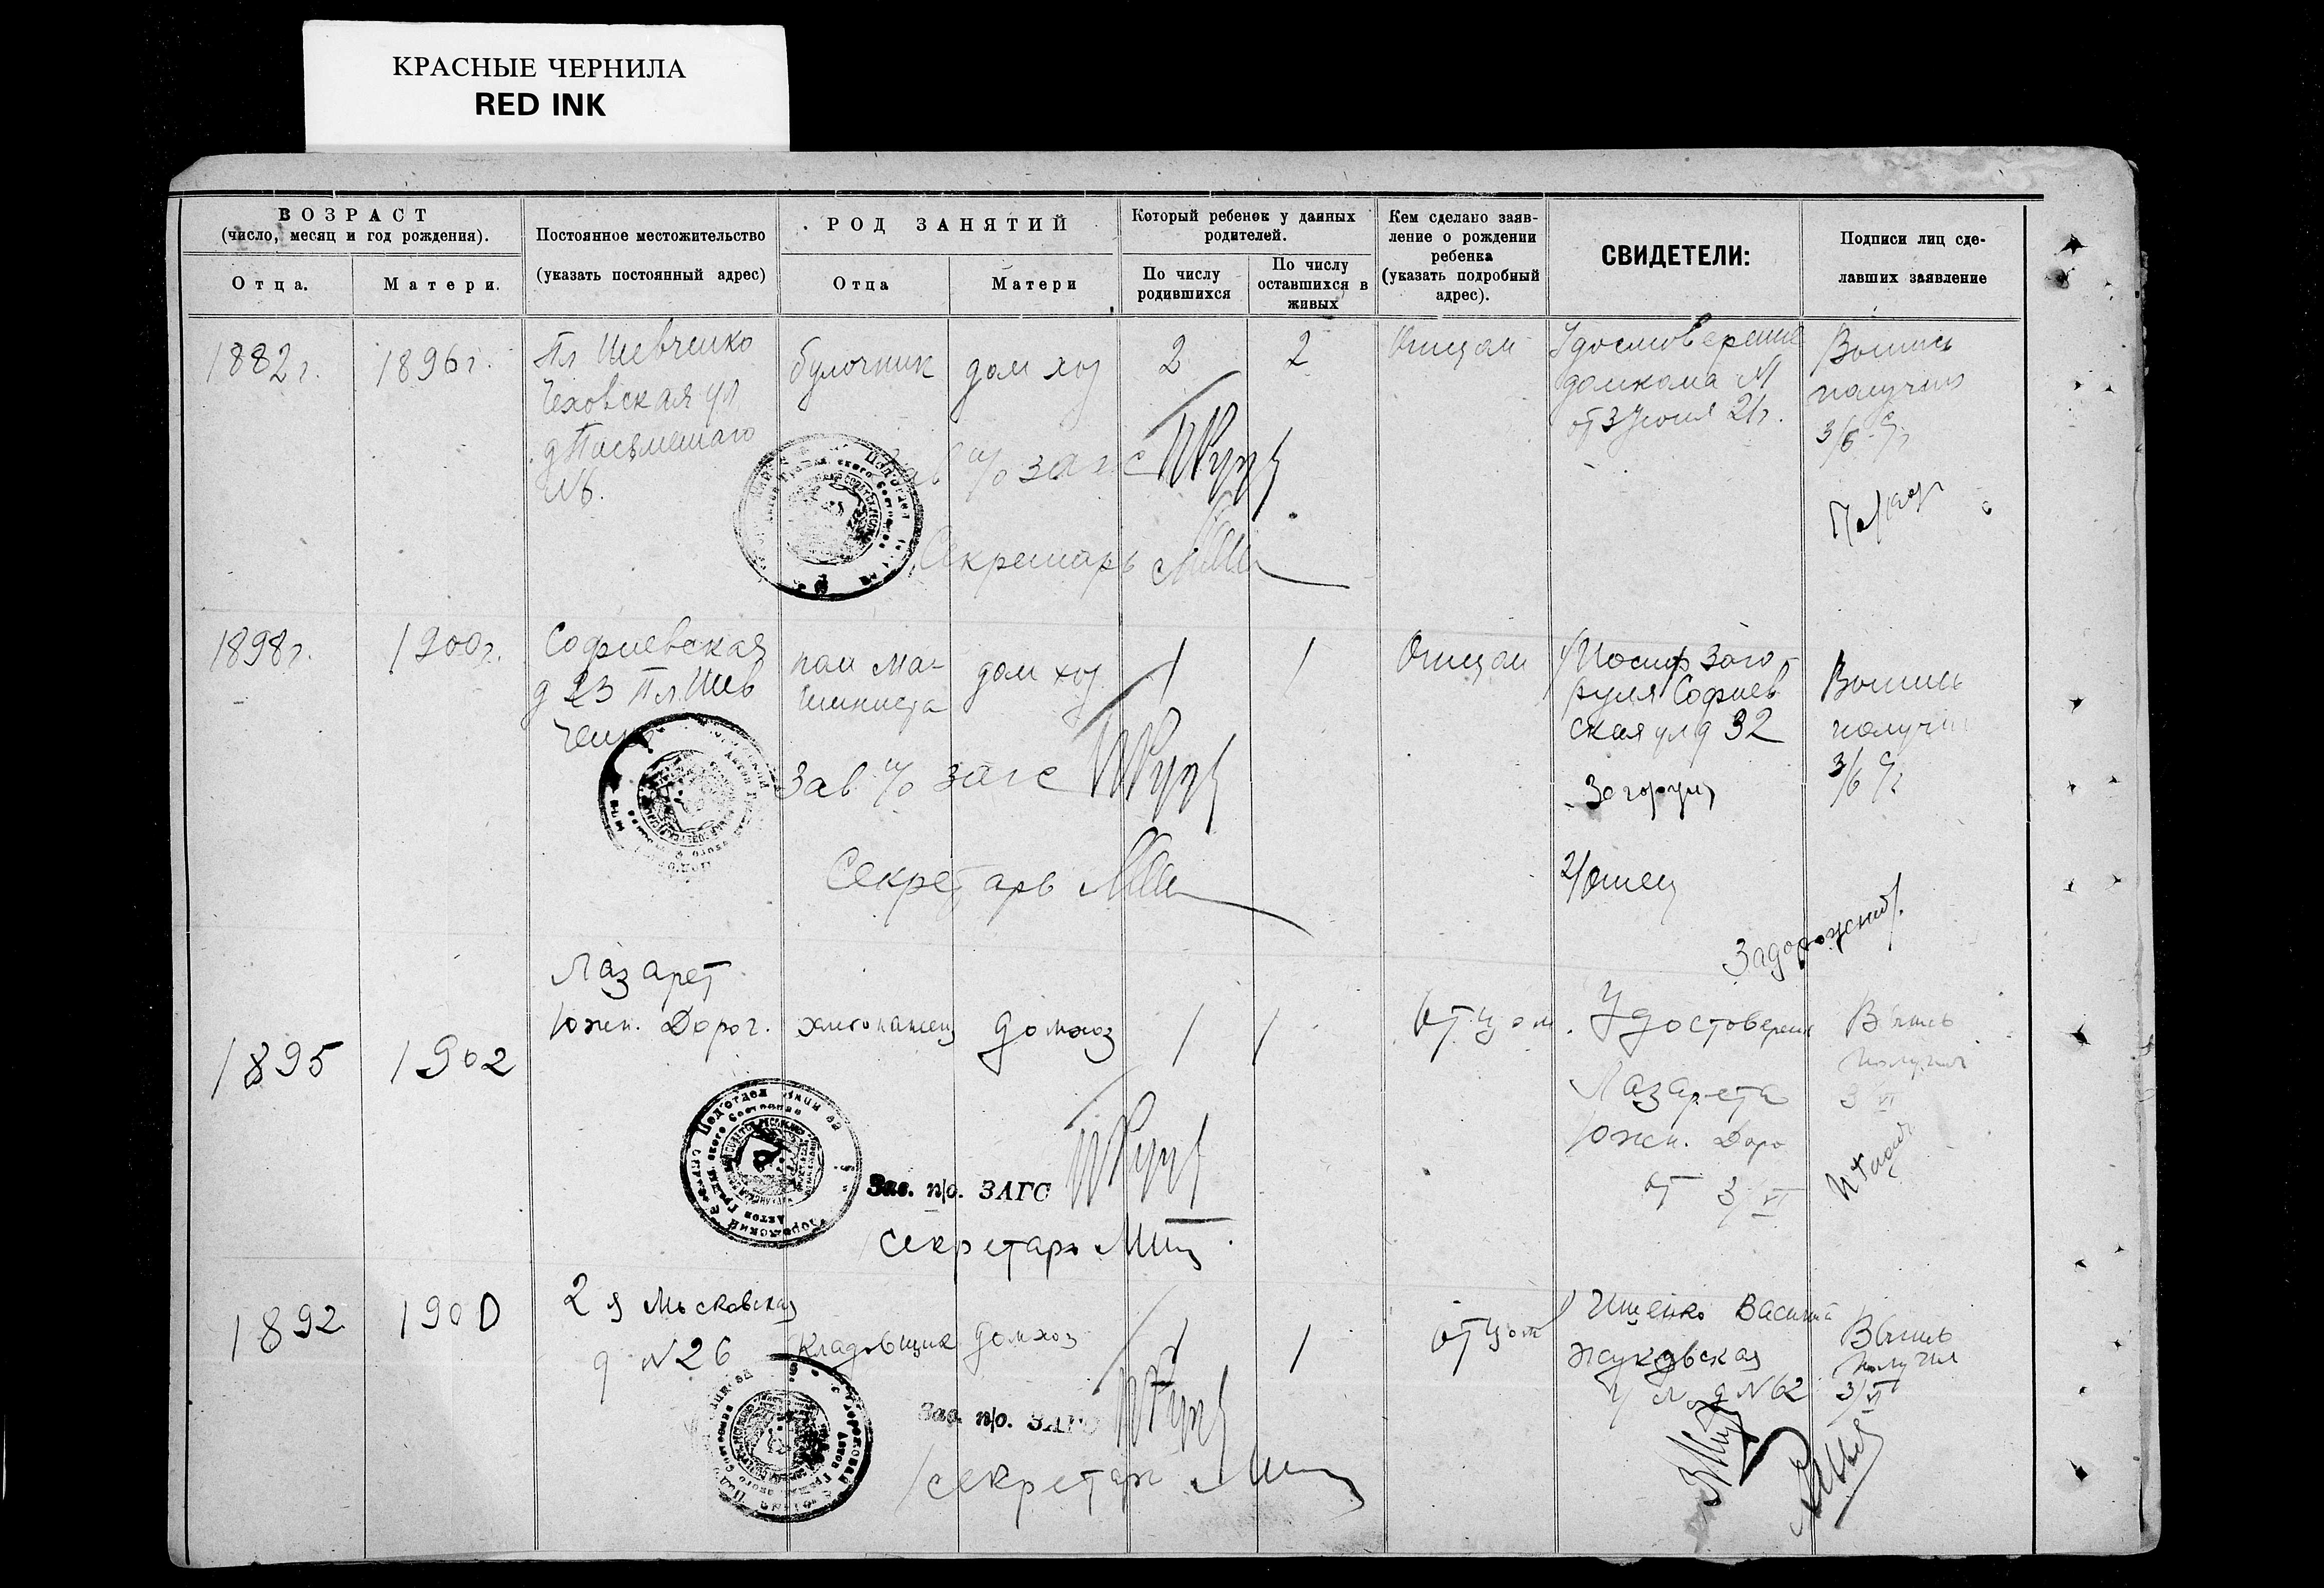 КРАСНЫЕ ЧЕРНИЛА
RED INK
ВОЗРАСТ
(число, месяц и год рождения).
Отца.
Матери.
Постоянное местожительство
(указать постоянный адрес)
РОД ЗАНЯТИЙ
Отца
Матери
Который ребенок у данных
родителей.
По числу
родившихся
По числу
оставшихся в
живых
Кем сделано заяв-
ление о рождении
ребенка
(указать подробный
адрес).
СВИДЕТЕЛИ:
Подписи лиц сде-
лавших заявление
1882 г.
1896 г.
Пл Шевченко
Чеховская ул
д
№6.
булочник
дом хоз
2
2
Отцом
Удостоверение
домкома
от 3 Июня 21 г.
Выпись
получил
3/6
п/о загс
Секретарь
1898 г.
1900 г.
Софиевская
д 23 Пл Шев
пом ма-
шиниста
дом хоз
1
1
Отцом
1/ Иосиф Заго
руля Софиев
ская ул д 32
Загоруля
2/ отец
Выпись
получил
3/6
Зав п/о загс
Секретарь
Задорожный
1895
1902
Лазарет
Южн. Дорог.
домхоз
1
1
отцом.
Удостоверение
Лазарета
Южн. Доро
от 3/VI
Выпись
получил
3 VI
Зав. п/о. ЗАГС
Секретарь
1892
1900
2 я Московская
д №26
Кладовщик
домхоз
1
отцом
Ищенко Василий
Жуковская
ул д №62
Выпись
получил
3/VI
Зав. п/о. ЗАГС
секретарь